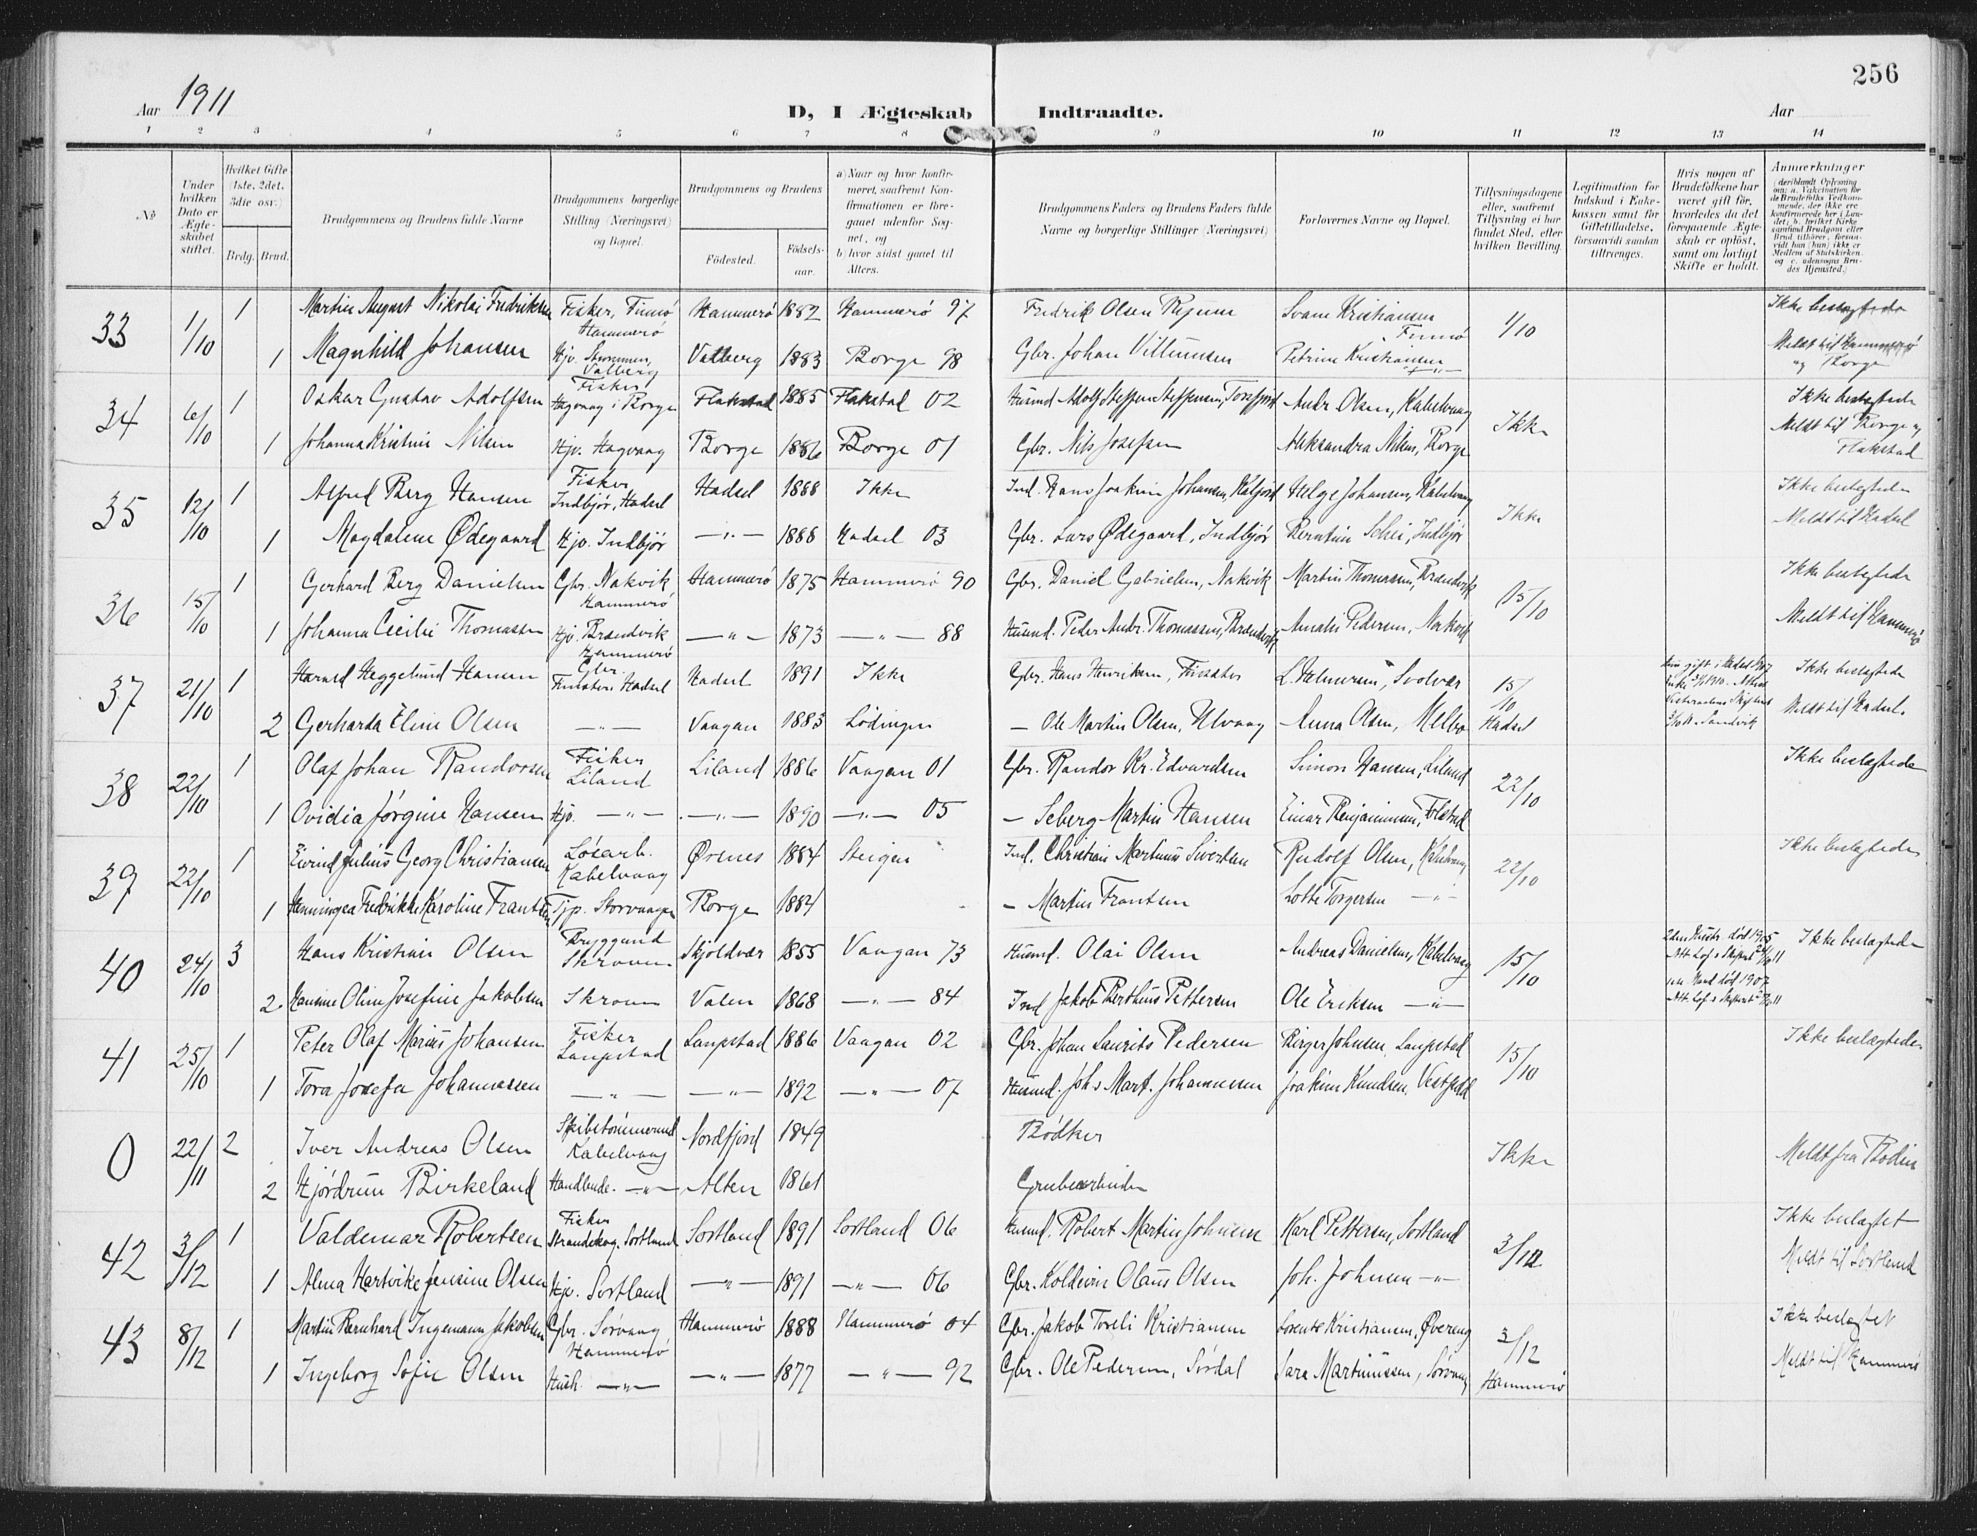 256
Aar 1911
D, I Ægteskab Indtraadte.
Aar
1 2 3 4 5 6 7 8 9 10 11 12 13 14
No
Under hvilken Dato er Ægteskabet stiftet.
Hvilket Gifte (1ste, 2det, 3die osv.)
Brdg. Brud.
Brudgommens og Brudens fulde Navne
Brudgommens borgerlige Stilling (Næringsvei) og Bopæl.
Brudgommens og Brudens
Fødested. Fødselsaar.
a) Naar og hvor konfirmeret, saafremt Konfirmationen er foregaaet udenfor Sognet, og
b) hvor sidst gaaet til Alters.
Brudgommens Faders og Brudens Faders fulde Navne og borgerlige Stillinger (Næringsvei)
Forlovernes Navne og Bopæl.
Tillysningsdagene eller, saafremt Tillysning ei har fundet Sted, efter hvilken Bevilling.
Legitimation for Indskud i Enkekassen samt for Giftetilladelse, forsaavidt saadan tiltrænges.
Hvis nogen af Brudefolkene har været gift før, hvorledes da det foregaaende Ægteskab er opløst, samt om lovligt Skifte er holdt.
Anmærkninger
33 1/10 1 Martin August Nikolai Fredriksen Fisker, Finnø Hammerø Hammerø 1882 Hammerø 97 Fredrik Olsen Svann Kristiansen Finnø 1/10 Ikke beslægtede
1 Magnhild Johansen Hjv. Strømmen, Valberg Valberg 1883 Borge 98 Gbr. Johan Villumsen Petrine Kristiansen —"— Meldt til Hammerø og Borge
34 6/10 1 Oskar Gustav Adolfsen Fisker Hagvaag i Borge Flakstad 1885 Flakstad 02 Husmd Adolf Steffen Steffensen, Torsfjord Andr. Olsen, Kabelvaag Ikke Ikke beslægtede
1 Johanna Kristine Nilsen Hjv. Hagvaag Borge 1886 Borge 01 Gbr. Nils Josefsen Aleksandra Nilsen, Borge Meldt til Borge og Flakstad
35 12/10 1 Alfred Berg Hansen Fisker Indbjør, Hadsel Hadsel 1888 Ikke Ind. Hans Joakim Johansen, Kalfjord Helge Johansen, Kabelvaag Ikke Ikke beslægtede
1 Magdalene Ødegaard Hjv. Indbjør —"— 1888 Hadsel 03 Gbr. Lars Ødegaard, Indbjør Berntine Schei, Indbjør Meldt til Hadsel
36 15/10 1 Gerhard Berg Danielsen Gbr. Nakvik Hammerø Hammerø 1875 Hammerø 90 Gbr. Daniel Gabrielsen, Nakvik Martin Thomassen, Brændvik 15/10 Ikke beslægtede
1 Johanna Cecilie Thomassen Hjv. Brændvik Hammerø —"— 1873 —"— 88 Husmd. Peder Andr. Thomassen, Brændvik Amalie Pedersen, Nakvik Meldt til Hammerø
37 21/10 1 Harald Heggelund Hansen Gbr Finsæter, Hadsel Hadsel 1891 Ikke Gbr. Hans Henriksen, Finsæter L. Helmersen, Svolvær 15/10 Ikke beslægtede
2 Gerharda Eline Olsen —"— Vaagan 1883 Lødingen — Ole Martin Olsen, Ulvaag Anna Olsen, Melbo Hadsel Meldt til Hadsel.
38 22/10 1 Olaf Johan Randorsen Fisker Liland Liland 1886 Vaagan 01 Gbr. Randor Kr. Edvardsen Simon Hansen, Liland 22/10 Ikke beslægtede
1 Ovidia Jørgine Hansen Hjv. —"— —"— 1890 —"— 05 — Seberg Martin Hansen Einar Benjaminsen, Følstad
39 22/10 1 Eivind Julius Georg Christiansen Løsarb. Kabelvaag Ørenes 1884 Steigen Ind. Christian Martinus Sivertsen Rudolf Olsen, Kabelvaag 22/10 Ikke beslægtede
1 Henningea Fredrikke Karoline Frantsen Tjp. Storvaagen Borge 1884 — Martin Frantsen Lotte Torgersen —"—
40 24/10 3 Hans Kristian Olsen Bryggemd Skroven Skjoldvær 1855 Vaagan 73 Husmd. Olai Olsen Andreas Danielsen, Kabelvaag 15/10 Ikke beslægtede
2 Hansine Oline Josefine Jakobsen Skroven Valen 1868 —"— 84 Ind Jakob Berthius Pettersen Ole Eriksen —"—
41 25/10 1 Peter Olaf Marius Johansen Fisker Laupstad Laupstad 1886 Vaagan 02 Gbr. Johan Laurits Pedersen Birger Johnsen, Laupstad 15/10 Ikke beslægtede
1 Tora Josefa Johannessen —"— —"— 1892 —"— 07 Husmd. Johs Mart. Johannessen Joakim Knudsen, Vestfold
0 22/11 2 Iver Andreas Olsen Skibstømmermd Kabelvaag Nordfjord 1849 Bødker Ikke Meldt fra Bodin
2 Hjørdrun Birkeland Handlende. —"— Alten 1861 Grubearbeider
42 3/12 1 Valdemar Robertsen Fisker Strandskog. Sortland Sortland 1891 Sortland 06 Husmd. Robert Martin Johnsen Karl Pettersen, Sortland 3/12 Ikke beslægtet
1 Alma Hartvikke Jensine Olsen Hjv. Sortland —"— 1891 —"— 06 Gbr. Koldevin Olaus Olsen Joh. Johnsen —"— Meldt til Sortland
43 8/12 1 Martin Bernhard Ingemann Jakobsen Gbr. Sørvaag Hammerø Hammerø 1888 Hammerø 04 Gbr. Jakob Toreli Kristiansen Lorents Kristiansen, Øvereng 3/12 Ikke beslægtet
1 Ingeborg Sofie Olsen Hush. —"— —"— 1877 —"— 92 Gbr. Ole Pedersen, Sørdal Sara Martinussen, Sørvaag Hammerø Meldt til Hammerø